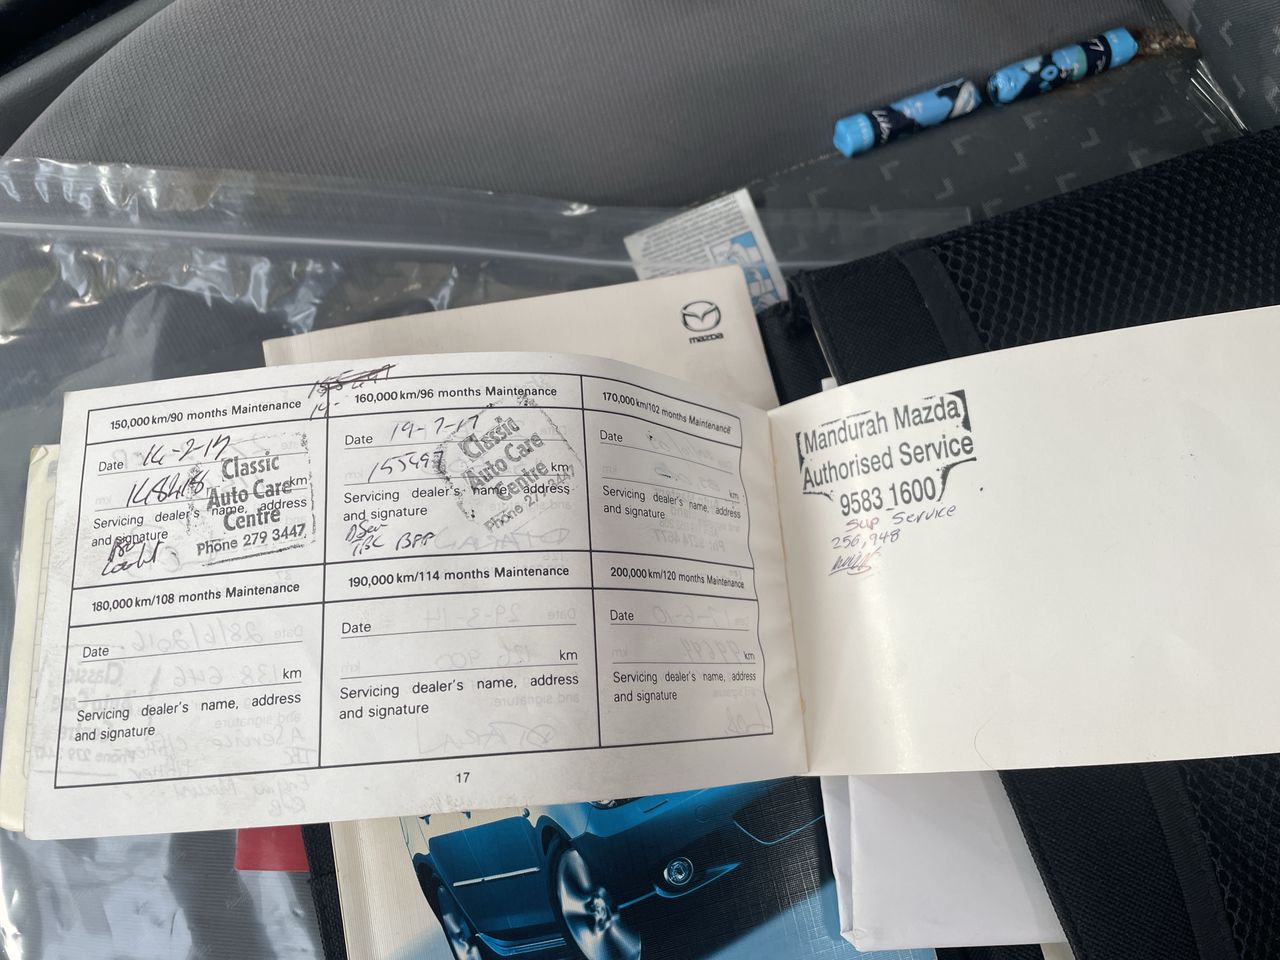 mazda
150,000 km/90 months Maintenance
Date 14-2-17
148418 km
Servicing dealer's name, address
and signature
Classic
Auto Care
Centre
Phone 279 3447
160,000 km/96 months Maintenance
Date 19-7-17
155497 km
Servicing dealer's name, address
and signature
Classic
Auto Care
Centre
Phone 279 344
170,000 km/102 months Maintenance
Date
km
Servicing dealer's name, address
and signature
180,000 km/108 months Maintenance
Date
km
Servicing dealer's name, address
and signature
190,000 km/114 months Maintenance
Date
km
Servicing dealer's name, address
and signature
200,000 km/120 months Maintenance
Date
km
Servicing dealer's name, address
and signature
17
Mandurah Mazda
Authorised Service
9583 1600
Sup Service
256,948